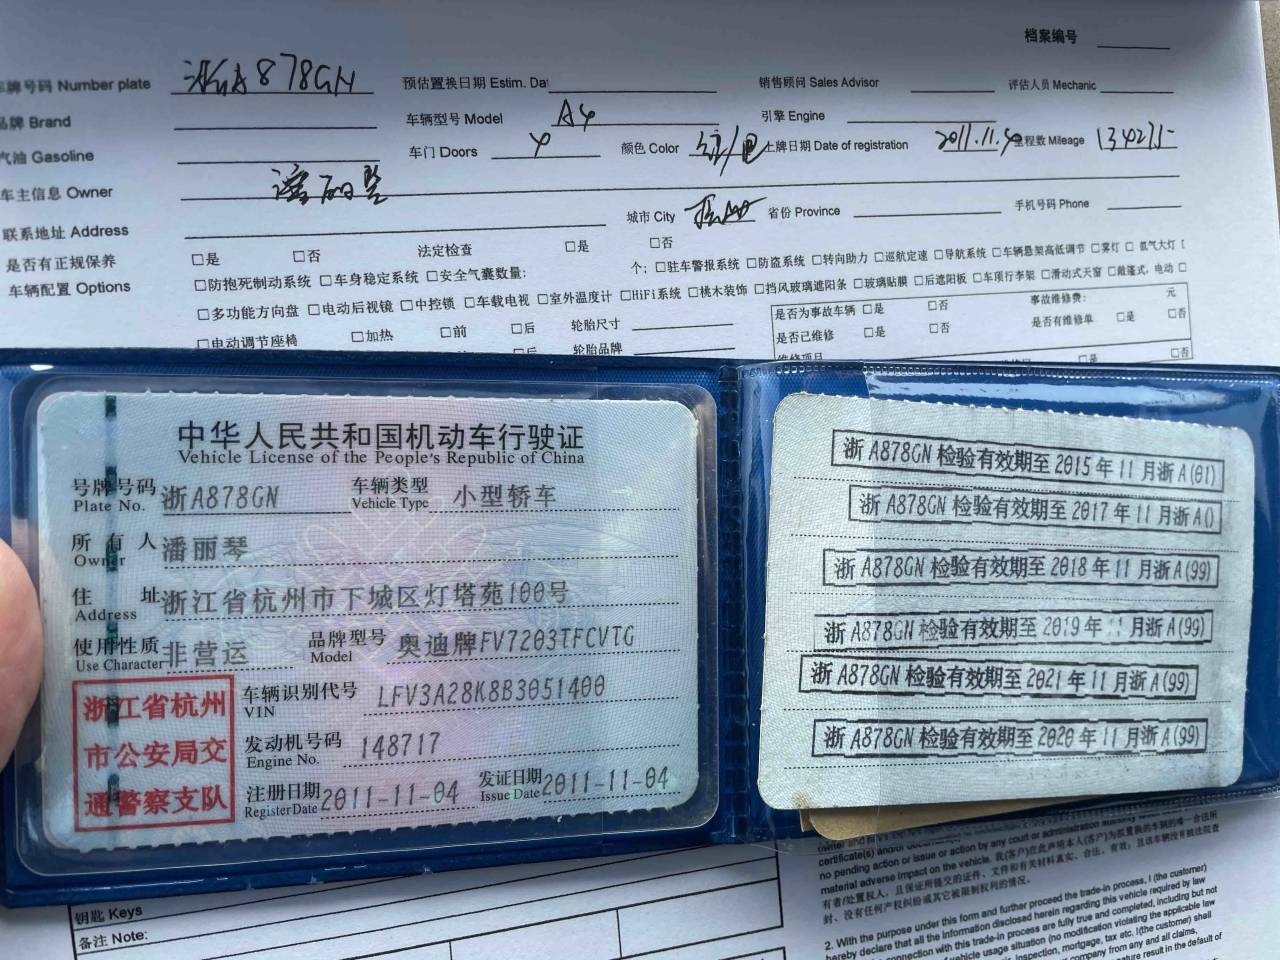 档案编号
车牌号码 Number plate 浙A878GN 预估置换日期 Estim. Dat 销售顾问 Sales Advisor 评估人员 Mechanic
品牌 Brand 车辆型号 Model A4 引擎 Engine
汽油 Gasoline 车门 Doors 4 颜色 Color 上牌日期 Date of registration 2011.11.4 里程数 Mileage
车主信息 Owner 潘丽琴
联系地址 Address 城市 City 杭州 省份 Province 手机号码 Phone
是否有正规保养 □是 □否 法定检查 □是 □否
车辆配置 Options □防抱死制动系统 □车身稳定系统 □安全气囊数量: 个; □驻车警报系统 □防盗系统 □转向助力 □巡航定速 □导航系统 □车辆悬架高低调节 □雾灯 □氙气大灯
□多功能方向盘 □电动后视镜 □中控锁 □车载电视 □室外温度计 □HiFi系统 □桃木装饰 □挡风玻璃遮阳条 □玻璃贴膜 □后遮阳板 □车顶行李架 □滑动式天窗 □敞篷式,电动
□电动调节座椅 □加热 □前 □后 轮胎尺寸 是否为事故车辆 □是 □否 事故维修费: 元
□后 轮胎品牌 是否已维修 □是 □否 是否有维修单 □是 □否
维修项目 □是 □否
中华人民共和国机动车行驶证
Vehicle License of the People's Republic of China
号牌号码 浙A878GN 车辆类型 小型轿车
Plate No. Vehicle Type
所有人 潘丽琴
Owner
住址 浙江省杭州市下城区灯塔苑100号
Address
使用性质 非营运 品牌型号 奥迪牌FV7203TFCVTG
Use Character Model
浙江省杭州
市公安局交
通警察支队
车辆识别代号 LFV3A28K8B3051400
VIN
发动机号码 148717
Engine No.
注册日期 2011-11-04 发证日期 2011-11-04
Register Date Issue Date
浙A878GN 检验有效期至 2015 年 11 月浙A(01)
浙A878GN 检验有效期至 2017 年 11 月浙A()
浙A878GN 检验有效期至 2018 年 11 月浙A(99)
浙A878GN 检验有效期至 2019 年 11 月浙A(99)
浙A878GN 检验有效期至 2021 年 11 月浙A(99)
浙A878GN 检验有效期至 2020 年 11 月浙A(99)
钥匙 Keys
备注 Note:
certificate(s) and/or document(s)
no pending action or issue or action by any court or administration
material adverse impact on the vehicle. 我(客户)在此声明本人(客户)为拟置换的车辆的唯一合法所
有者/处置权人,且保证所提交的证件、文件和有关材料真实、合法、有效;且该车辆没有被法院查
封、没有任何产权纠纷或其它被限制权利的情况。
2. With the purpose under this form and further proceed the trade-in process, I (the customer)
hereby declare that all the information disclosed herein regarding this vehicle required by law
connection with this trade-in process are fully true and completed, including but not
vehicle usage situation (no modification violating the applicable law
inspection, mortgage, tax etc. I(the customer) shall
company from any and all claims,
result in the default of